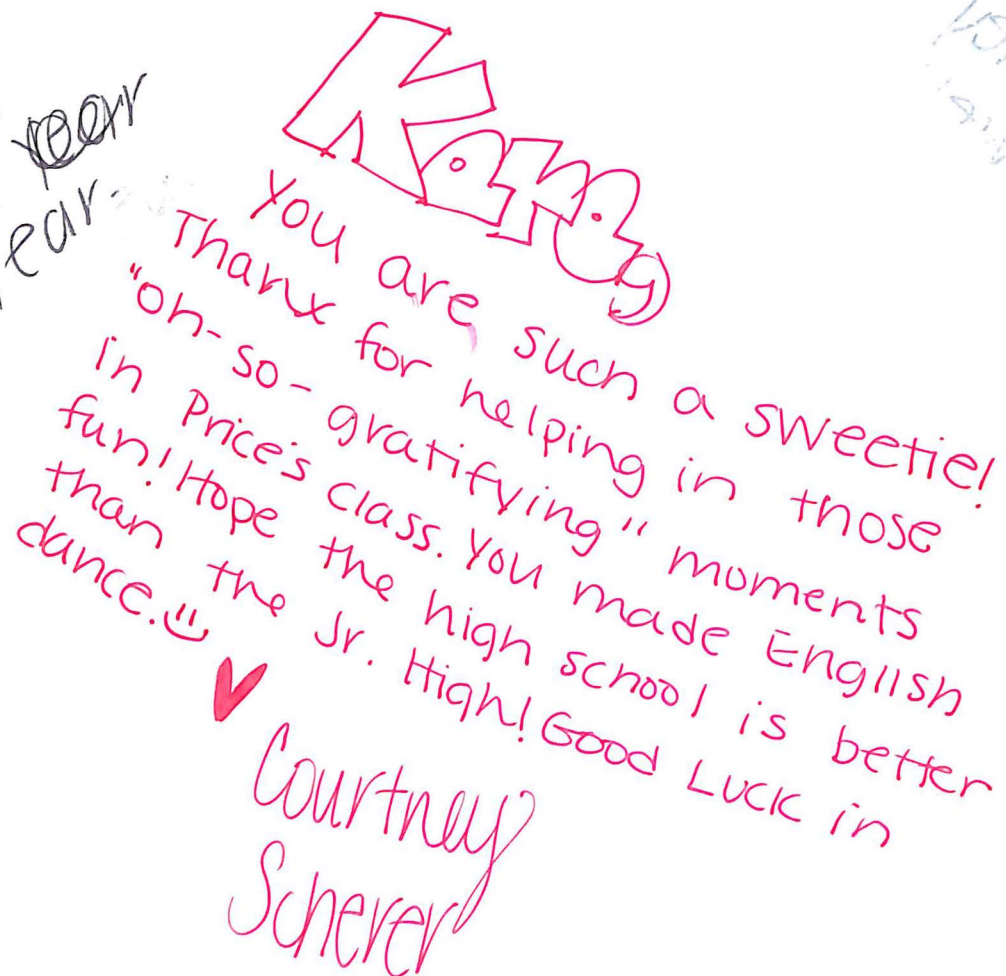 year
You are such a sweetie!
Thanx for helping in those
"oh-so-gratifying" moments
in Price's class. You made English
fun! Hope the high school is better
than the Jr. High! Good Luck in
dance.
Courtney
Scherer